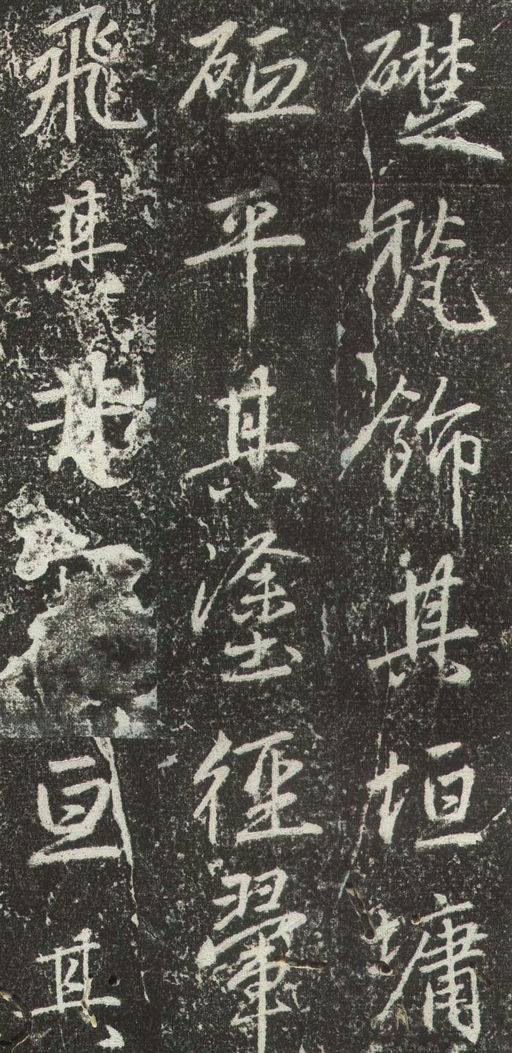 礎甃飾其垣墉
砥平其塗徑翬
飛其
亘其